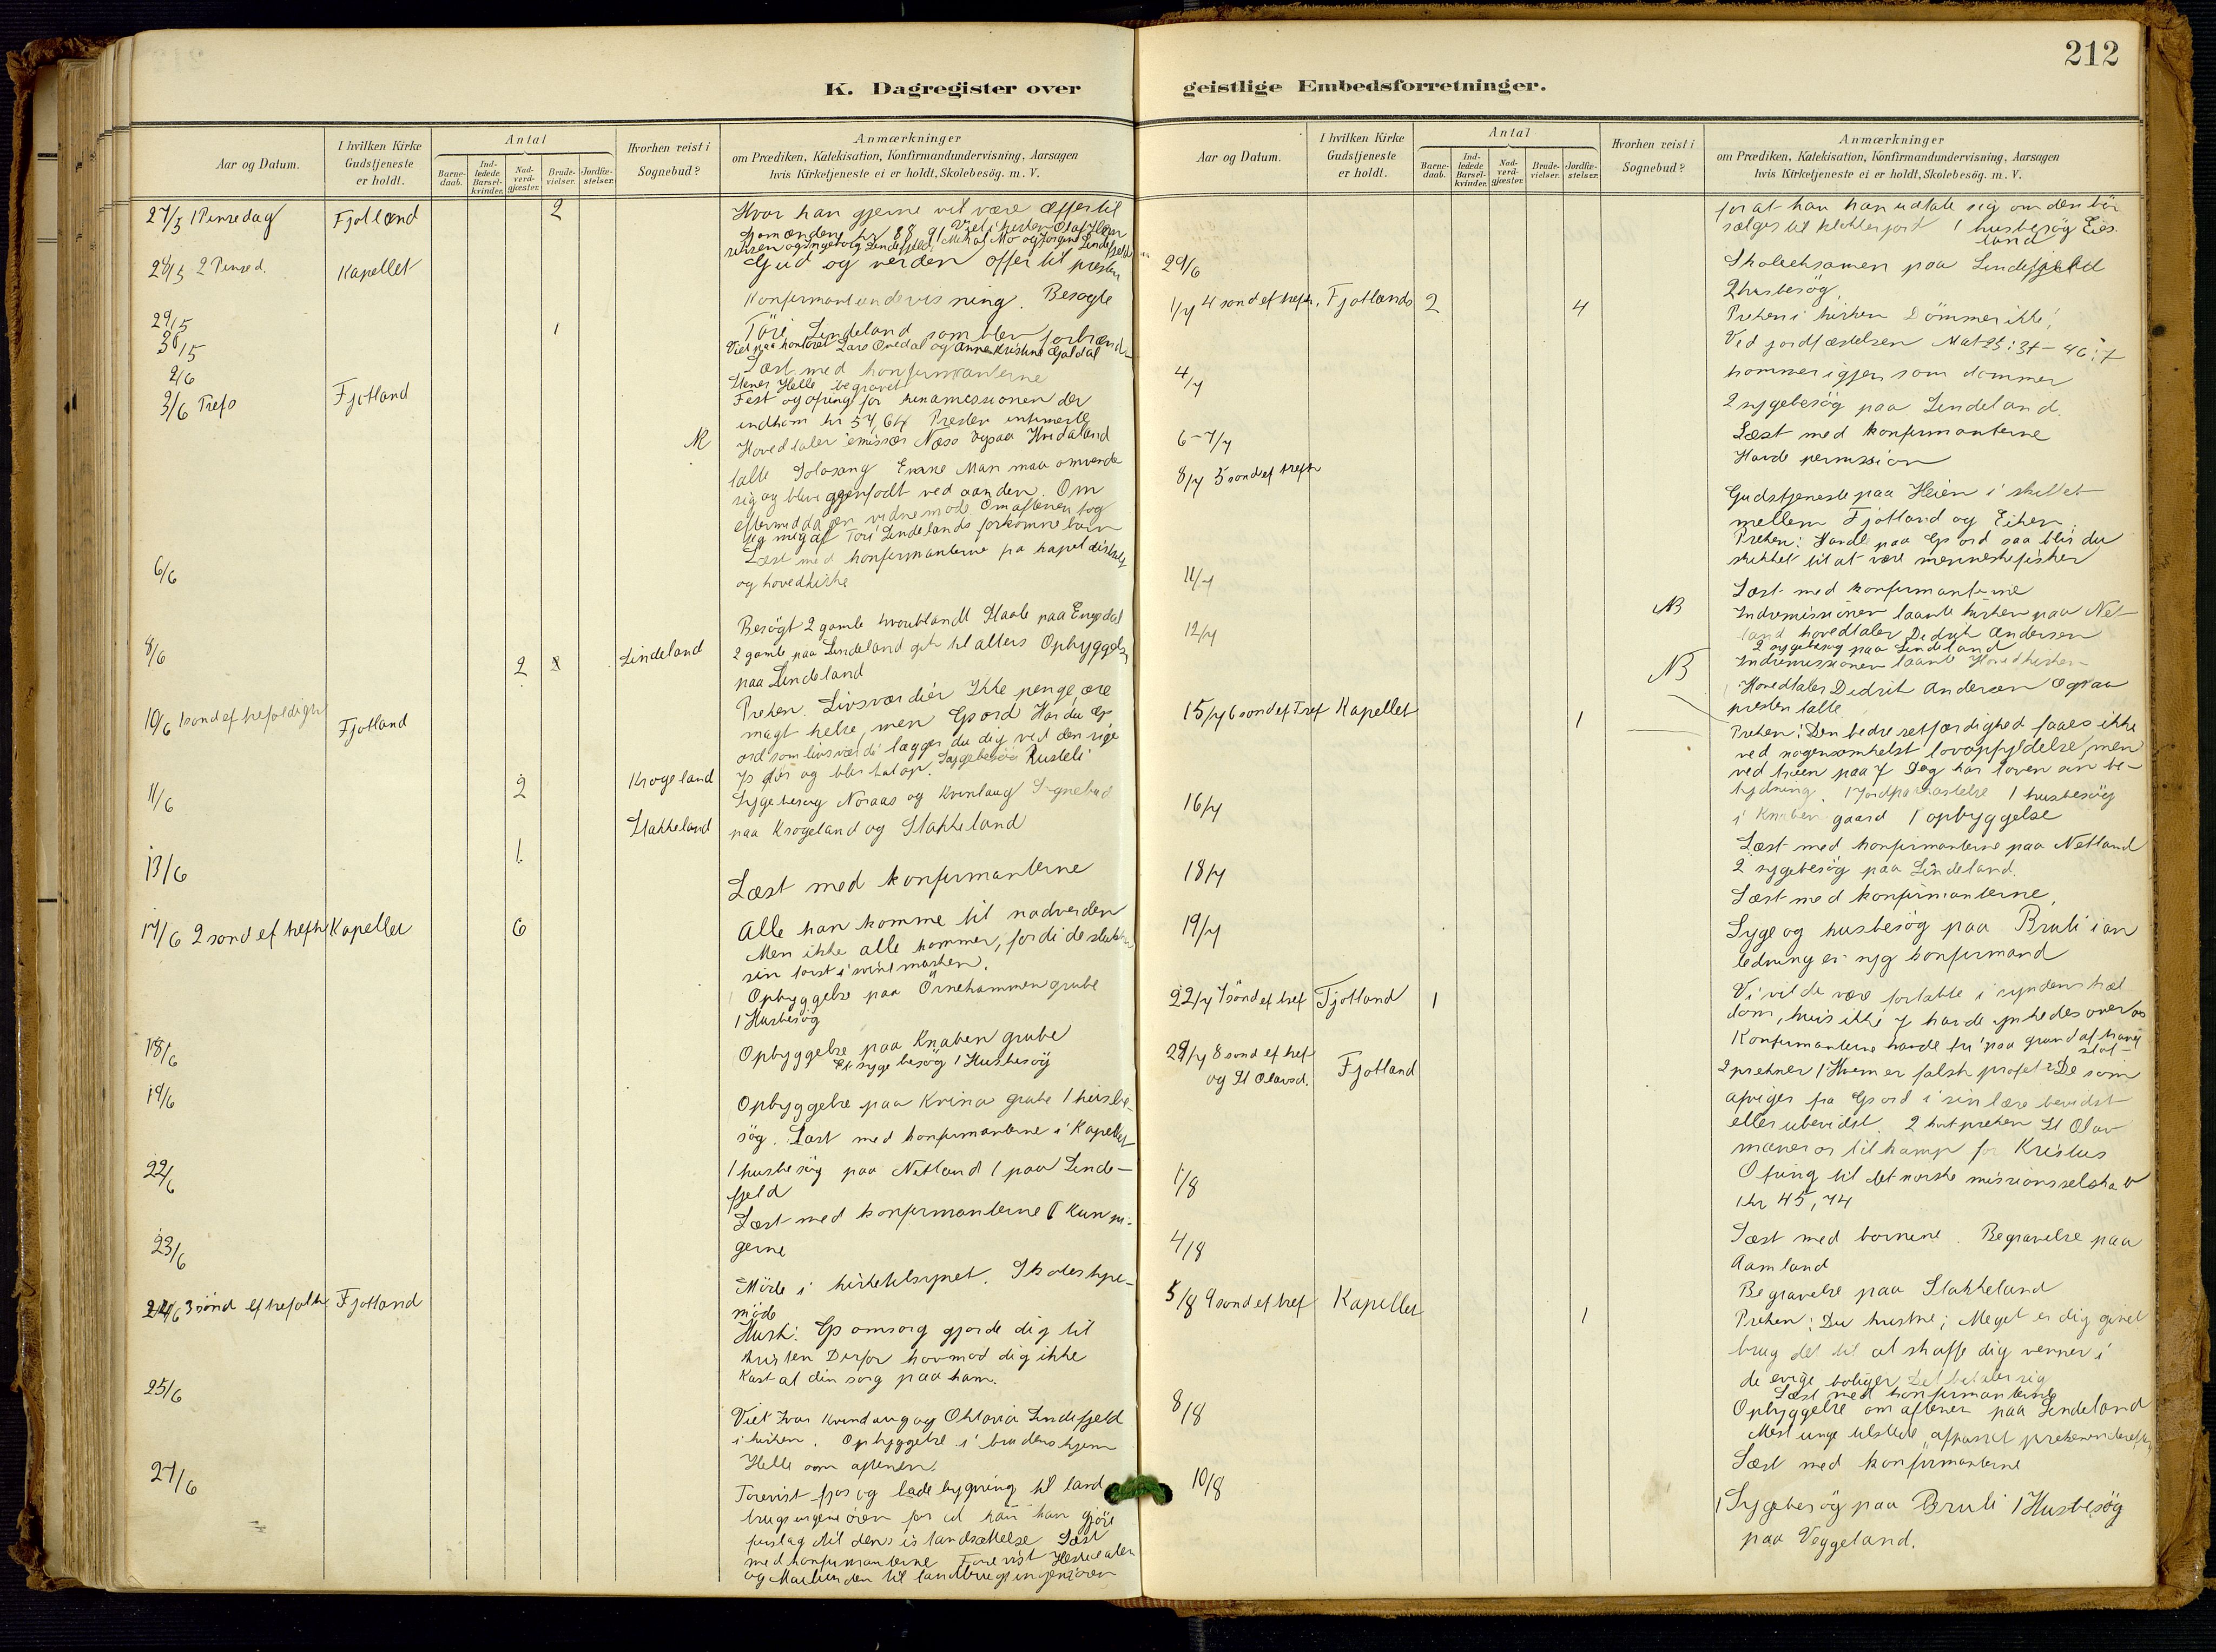 212
K. Dagregister over
geistlige Embedsforretninger.
Aar og Datum.
I hvilken Kirke
Gudstjeneste
er holdt.
Antal
Barne-
daab.
Ind-
ledede
Barsel-
kvinder.
Nad-
verd-
gjæster.
Brude-
vielser.
Jordfæ-
stelser.
Hvorhen reist i
Sognebud?
Anmærkninger
om Prædiken, Katekisation, Konfirmandundervisning, Aarsagen
hvis Kirketjeneste ei er holdt, Skolebesög. m. V.
27/5 1 Pinsedag Fjotland 2 Hvor han gjerne vil være Offer til
Viet i kirken Olaf
kr 88,91
og Ingeborg Lindefjeld, Mikal Mo og Jorgine Lindefjeld
28/5 2 Pinsed. Kapellet Gud og verden offer til presten
Konfirmantundervisning. Besøgte
29/5 1 Töri Lindeland som blev forbrænd-
30/5 Viet paa kontoret Lars Ovedal og Anne Kristine Gjaldal
2/6 Læst med konfirmanterne
Helle begravet
3/6 Trefo Fjotland Fest og ofring for kinamissionen der
indkom kr 54,64 Presten
Hovedtaler emissær Næso ogsaa Hvidaland
talte Solosang Emne Man maa omvende
sig og blive gjenfodt ved aanden. Om
eftermiddagen vidnemöde Om aftenen tog
jeg mig af Töri Lindelands forkomne barn
6/6 Læst med konfirmanterne fra kapeldistrikt
og hovedkirke
Besögt 2 gamle hvoriblandt Staale paa Engedal
8/6 2 Lindeland 2 gamle paa Lindeland gik til alters Opbyggelse
paa Lindeland
10/6 1 sond ef trefoldigh Fjotland Preken. Livsværdier Ikke penge, ære
magt helse, men Gs ord Har du Gs
ord som livsværdi lægger du dig ved den rige
Js dør og blir tat op. Sygebesög Rusteli
11/6 2 Krogeland Sygebesög Noraas og Kvinlaug Sognebud
Stakkeland paa Krogeland og Stakkeland
1
13/6 Læst med konfirmanterne
17/6 2 sond ef trefh Kapellet 6 Alle kan komme til nadverden
Men ikke alle kommer, fordi de slukker
sin torst i svinemasken.
Opbyggelse paa Örnehammen grube
1 Husbesög
18/6 Opbyggelse paa Knaben grube
Et sygebesög 1 Husbesög
19/6 Opbyggelse paa Kvina grube 1 husbe-
sög. Læst med konfirmanterne i Kapellet
22/6 1 husbesög paa Netland 1 paa Linde-
fjeld
Læst med konfirmanterne Kun pi-
gerne
23/6 Möde i kirketilsynet. Skolestyre-
möde
24/6 3 sönd ef trefoldh Fjotland Husk: Gs omsorg gjorde dig til
kristen Derfor hovmod dig ikke
Kast al din sorg paa ham.
25/6 Viet Ivar Kvindaug og Oktavia Lindefjeld
i kirken. Opbyggelse i brudens hjem
Helle om aftenen.
27/6 Forevist fjos og ladebygning til land
brugsingeniören for at han kan gjöre
forslag til dens istandsættelse Læst
med konfirmanterne Forevist
til landbrugsingeniören
for at han kan udtale sig om den bör
sælges til klokkerjord 1 husbesög Eies-
land
29/6 Skoleeksamen paa Lindefjeld
2 husbesög
1/7 4 sond ef trefh. Fjotlands 2 4 Preken i kirken Dömmer ikke!
Ved jordfæstelsen Mat 25: 31-46: J
kommer igjen som dommer
4/7 2 sygebesög paa Lindeland.
6-7/7 Læst med konfirmanterne
Havde permission
8/7 5 sond ef trefh Gudstjeneste paa Heien i skillet
mellem Fjotland og Eiken.
Preken: Harde paa Gs ord saa blir du
skikket til at være menneskefisker
11/7 Læst med konfirmanterne
NB Indremissionen laante kirken paa Net-
land hovedtaler Didrik Andersen
12/7 2 sygebesög paa Lindeland
NB Indremissionen laante Hovedkirken
Hovedtaler Didrik Andersen Ogsaa
presten talte
15/7 6 sond ef Tref Kapellet 1 Preken: Den bedre retfærdighed faaes ikke
ved nogensomhelst lovopfyldelse, men
ved troen paa J Dog har loven sin be-
tydning. 1 Jordpaakastelse 1 husbesög
16/7 i Knaben gaard 1 opbyggelse
Læst med konfirmanterne paa Netland
18/7 2 sygebesög paa Lindeland.
Læst med konfirmanterne.
19/7 Syge og husbesög paa Bruli i an
ledning ei syg konfirmand
22/7 7 sönd ef tref Fjotland 1 Vi vilde være fortabte i syndens træl
dom, hvis ikke J havde ynkedes over os
Konfirmanterne havde fri paa grund af
slot-
29/7 8 sond ef tref
og St Olavsd. Fjotland 2 prekner 1 Hvem er falsk profet? De som
afviger fra Gs ord i sin lære bevidst
eller ubevidst. 2 preken St Olav
maner os til kamp for Kristus
Ofring til det norske missionsselskab
1/8 kr 45,74
4/8 Læst med bornene. Begravelse paa
Aamland
Begravelse paa Stakkeland
5/8 9 sond ef tref Kapellet 1 Preken: Du kristne; Meget er dig givet
brug det til at skaffe dig venner i
de evige boliger. Det betaler sig
Læst med konfirmanterne
8/8 Opbyggelse om aftenen paa Lindeland
Mest unge tilstede, afpasset prekenen derefter
Læst med konfirmanterne
10/8 1 Sygebesög paa Bruli 1 Husbesög
paa Veggeland.